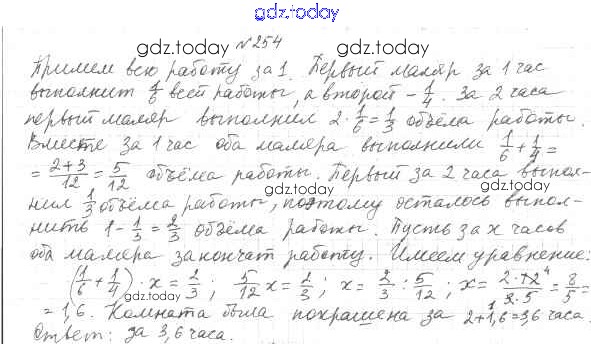 gdz.today
№254
gdz.today gdz.today
Примем всю работу за 1. Первый маляр за 1 час
выполнит 1/6 всей работы, а второй - 1/4. За 2 часа
первый маляр выполнил 2·1/6=1/3 объёма работы.
gdz.today
Вместе за 1 час оба маляра выполнили 1/6+1/4=
=2+3/12=5/12 объёма работы. Первый за 2 часа выпол-
gdz.today
нил 1/3 объёма работы, поэтому осталось выпол-
нить 1-1/3=2/3 объёма работы. Пусть за x часов
gdz.today gdz.today
оба маляра закончат работу. Имеем уравнение:
(1/6+1/4)·x=2/3; 5/12x=2/3; x=2/3:5/12; x=2·12⁴/3·5=8/5=
gdz.today
=1,6. Комната была покрашена за 2+1,6=3,6 часа.
Ответ: за 3,6 часа.
gdz.today gdz.today